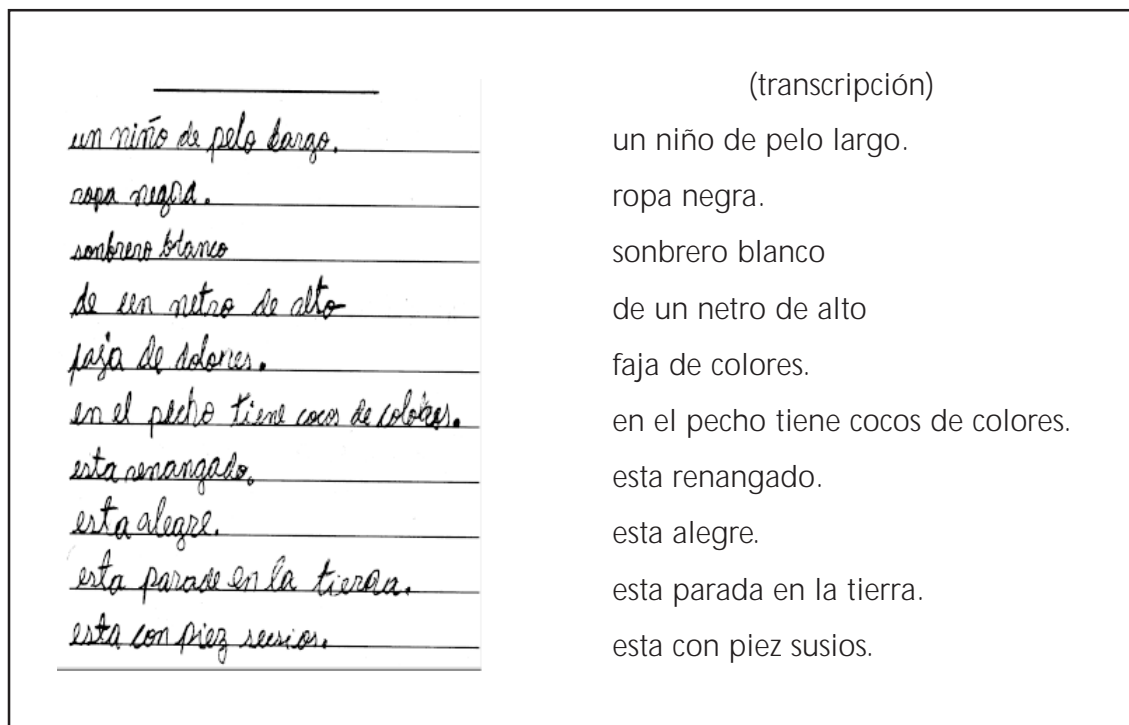 (transcripción)
un niño de pelo largo.
ropa negra.
sonbrero blanco
de un netro de alto
faja de colores.
en el pecho tiene cocos de colores.
esta renangado.
esta alegre.
esta parade en la tierra.
esta con piez susios.
un niño de pelo largo.
ropa negra.
sonbrero blanco
de un netro de alto
faja de colores.
en el pecho tiene cocos de colores.
esta renangado.
esta alegre.
esta parada en la tierra.
esta con piez susios.